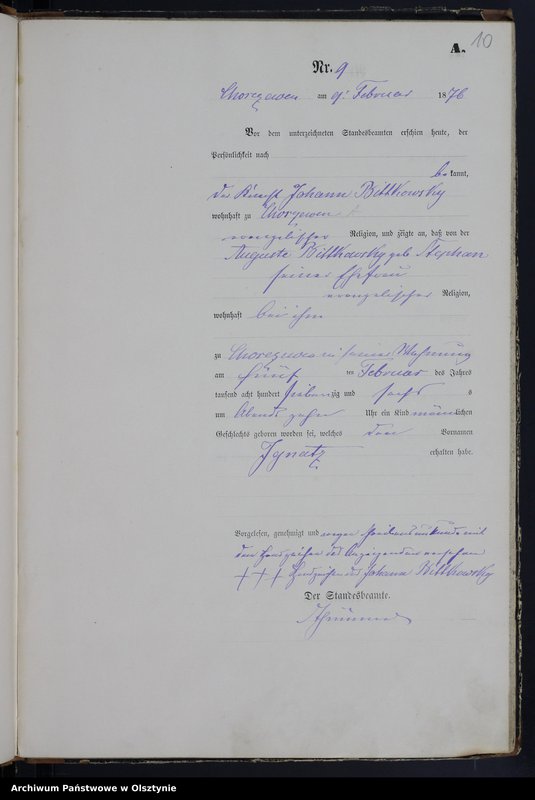 A. 10
Nr. 9
am 9. Februar 1876
Vor dem unterzeichneten Standesbeamten erschien heute, der
Persönlichkeit nach
bekannt,
der Knecht Johann Bittkowsky
wohnhaft zu
evangelischer Religion, und zeigte an, daß von der
Auguste Bittkowsky geb Stephan
seiner Ehefrau
evangelischer Religion,
wohnhaft bei ihm
zu in seiner Wohnung
am fünf ten Februar des Jahres
tausend acht hundert siebenzig und sechs
um Abends zehn Uhr ein Kind männlichen
Geschlechts geboren worden sei, welches den Vornamen
Ignatz erhalten habe.
Vorgelesen, genehmigt und wegen Schreibensunkunde mit
den Handzeichen des Anzeigenden versehen
+++ Handzeichen des Johann Bittkowsky
Der Standesbeamte.
Archiwum Państwowe w Olsztynie